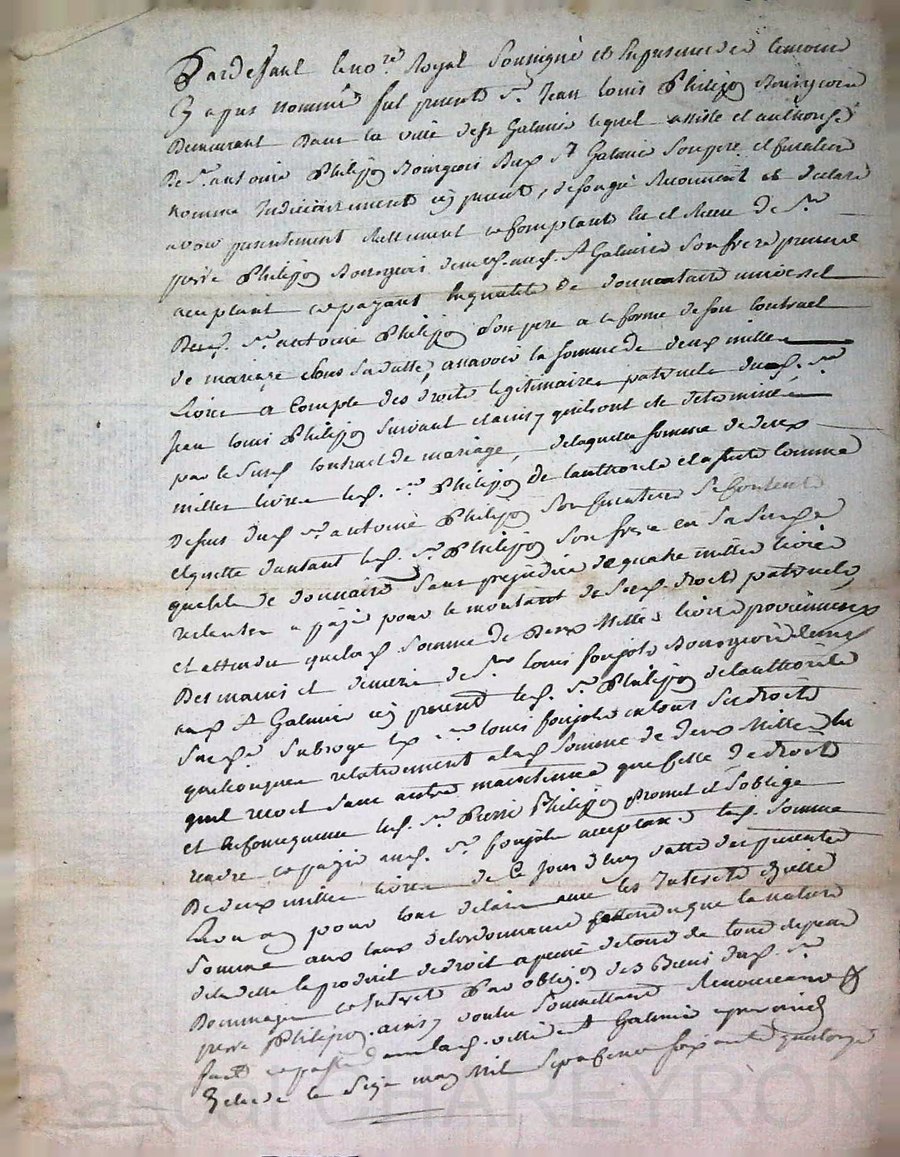 Pardevant le no.re Royal Soussigné et En presence des temoins
Cy apres nommés fut present S.r Jean Louis Philipon Bourgeois
Demeurant Dans la ville de St Galmier lequel assisté et authorisé
De S.r antoine Philipon Bourgeois Dud St Galmier Son pere et Curateur
nommé Judiciairement icy present, de son gré Reconnoit et declare
avoir presentement Reellement et Comptant Eu et Receu de S.r
pierre Philipon Bourgeois demeur. aud. St Galmier Son frere present
acceptant et payant En qualité de donnataire universel
Dud. S.r antoine Philipon Son pere a la forme de Son Contract
de mariage Sous Sa datte, a savoir la Somme de deux milles
Livres a Compte des droits legitimaires paternels dud. S.r
Jean louis Philipon Suivant et ainsy quils ont été determinés
par le Susd Contract de mariage, de laquelle Somme de deux
milles livres led. S.r Philipon de lauthorité et assisté Comme
Dessus dud S.r antoine Philipon Son Curateur Se Contente
et quitte d'autant led. S.r Philipon Son frere en Sa Susd.
qualité de donnataire Sans prejudice de quatre milles livres
restantes a payer pour le montant de Sesd. droits paternels,
et attendu que lad Somme de Deux Milles livres proviennent
Des mains et deniers de S.r louis Bourgeois demeur
aud St Galmier icy present led. S.r Philipon de lauthorité
Susd. Subroge led S.r louis en tous Ses droits
quelconques relativement a lad Somme de deux Milles liv
quil recoit Sans autre maintenue que Celle De droit
et En Consequence led. S.r Pierre Philipon promet et S'oblige
rendre et payer aud. S.r acceptant lad. Somme
De deux milles livres de Ce Jour d'huy datte des presentes
En un an pour tout delais avec les Interets d'icelle
Somme aux taux de lordonnance attendu que la nature
de la dette le produit de droit a peine de tous depens
Dommages et Interets Par oblig.on des Biens dud. S.r
pierre Philipon. ainsy voulu Soumettant Renonceant &
fait et passé en lad. ville de St Galmier
Etude le Seize may Mil Septcents Soixante quatorze
Pascal CHAREYRON